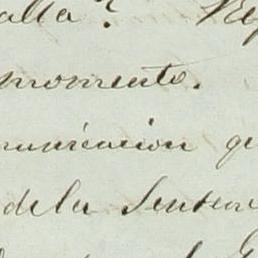 alla? Rep
momento.
municacion qu
de la Senten